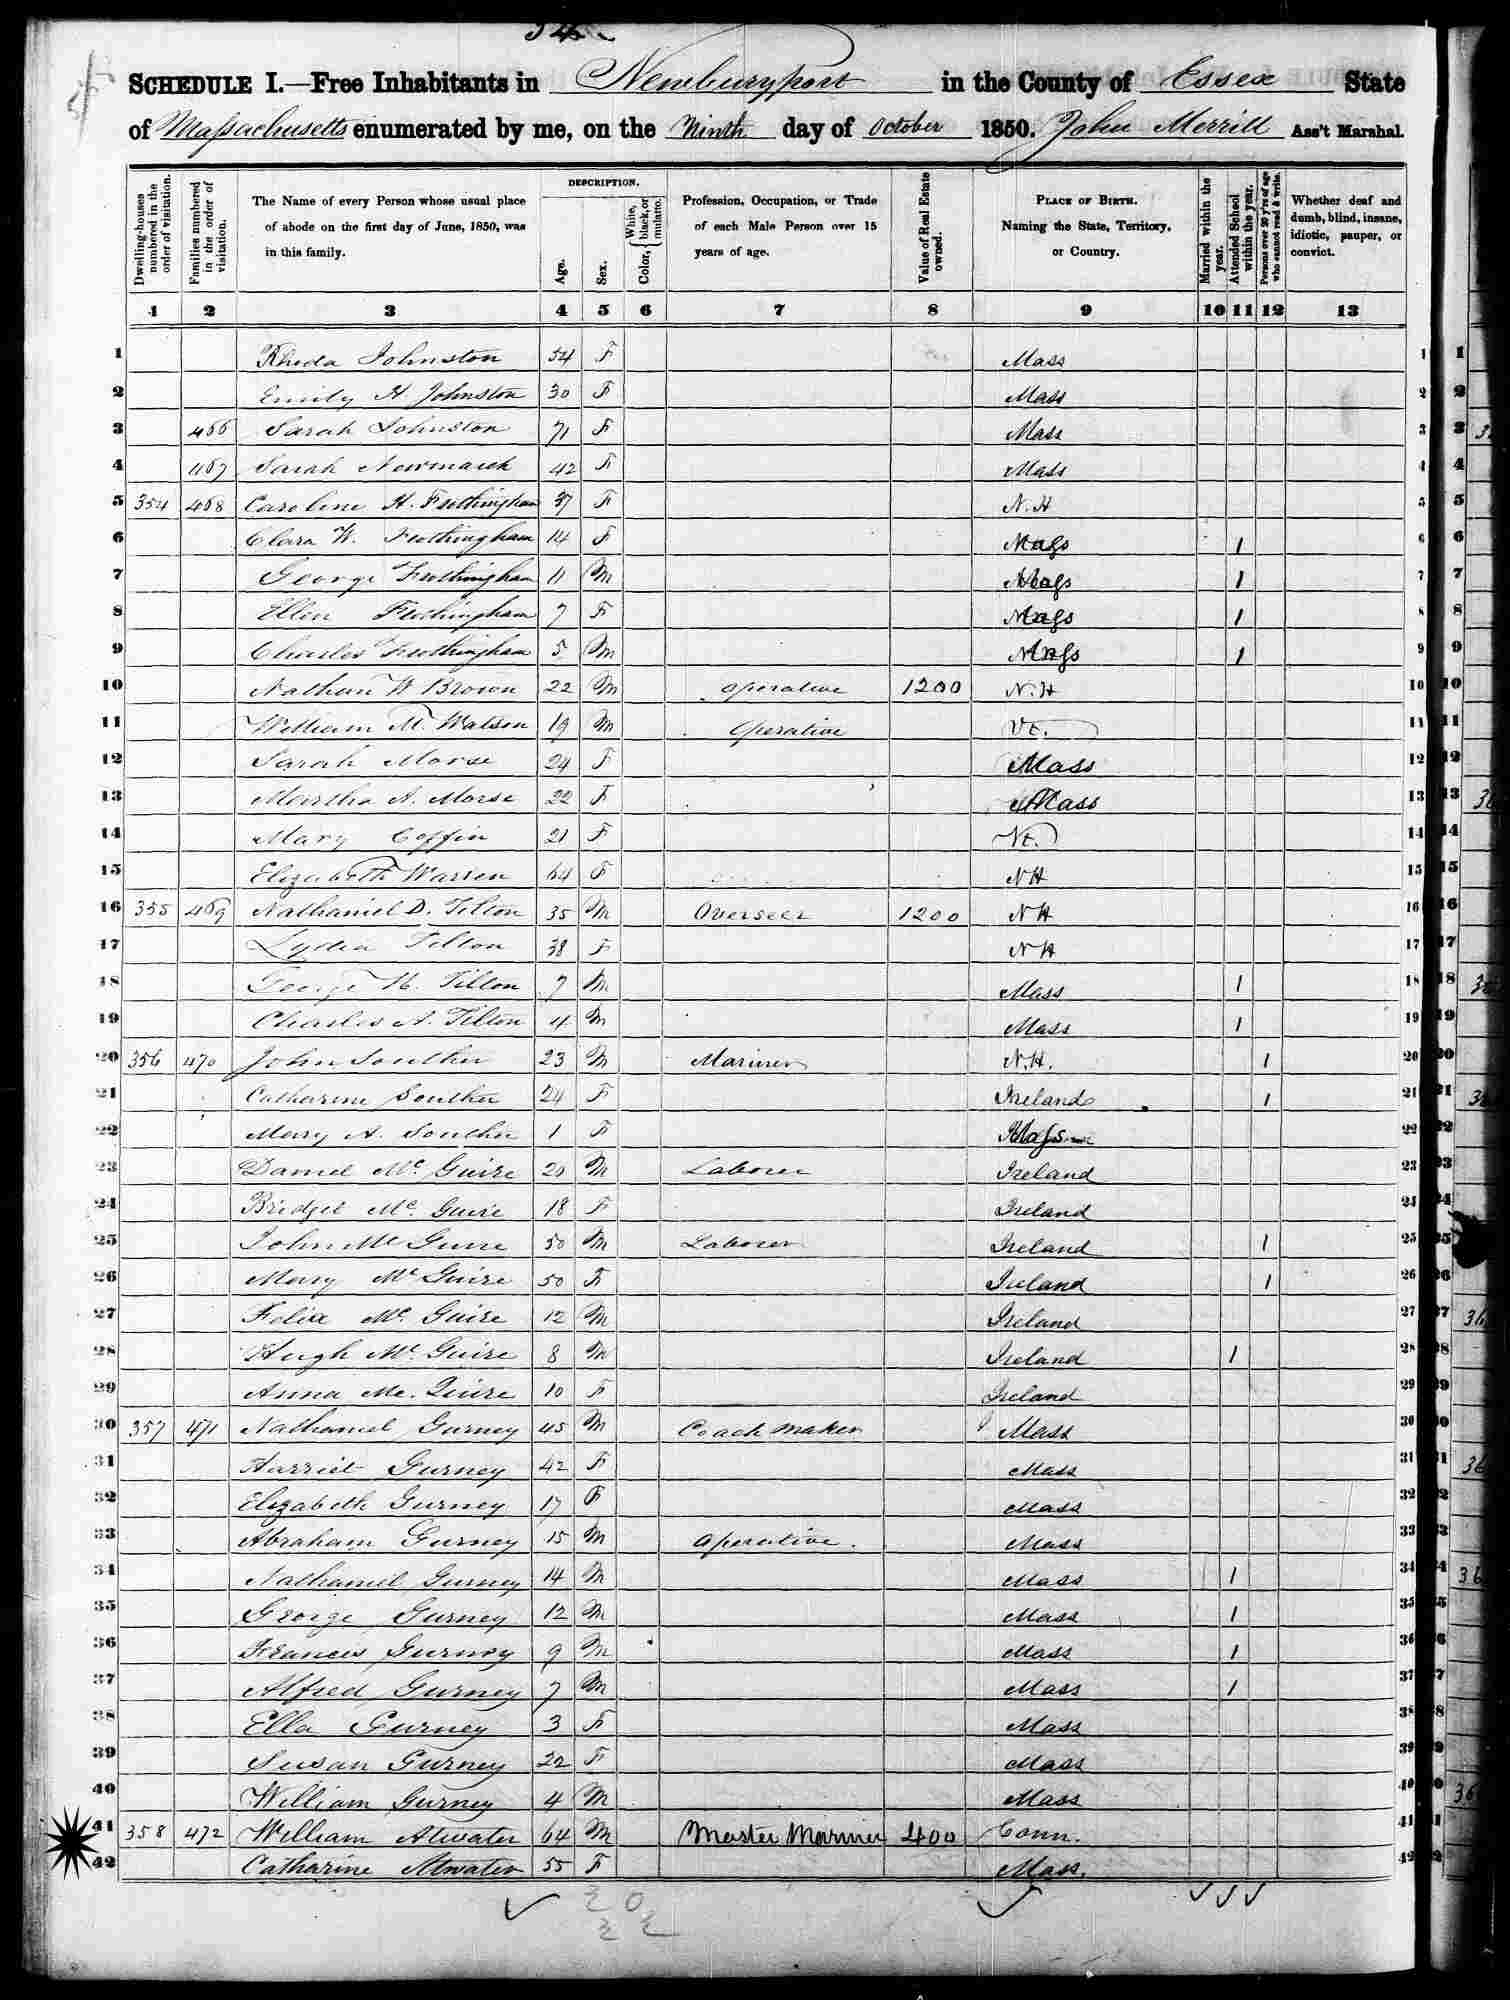 54
SCHEDULE I.—Free Inhabitants in Newburyport in the County of Essex State
of Massachusetts enumerated by me, on the Ninth day of October 1850. John Merrill Ass't Marshal.
Dwelling-houses numbered in the order of visitation.
Families numbered in the order of visitation.
The Name of every Person whose usual place of abode on the first day of June, 1850, was in this family.
DESCRIPTION.
Age.
Sex.
Color, { White, black, or mulatto.
Profession, Occupation, or Trade of each Male Person over 15 years of age.
Value of Real Estate owned.
PLACE OF BIRTH. Naming the State, Territory, or Country.
Married within the year.
Attended School within the year.
Persons over 20 y'rs of age who cannot read & write.
Whether deaf and dumb, blind, insane, idiotic, pauper, or convict.
1 2 3 4 5 6 7 8 9 10 11 12 13
1 Rhoda Johnston 54 F Mass 1
2 Emily H Johnston 30 F Mass 2
3 466 Sarah Johnston 71 F Mass 3
4 467 Sarah Newmarch 42 F Mass 4
5 354 468 Caroline H. Frothingham 37 F N.H 5
6 Clara W. Frothingham 14 F Mass 1 6
7 George Frothingham 11 M Mass 1 7
8 Ellen Frothingham 7 F Mass 1 8
9 Charles Frothingham 5 M Mass 1 9
10 Nathan W Brown 22 M Operative 1200 N.H 10
11 William M. Watson 19 M Operative Vt. 11
12 Sarah Morse 24 F Mass 12
13 Martha A. Morse 22 F Mass 13
14 Mary Coffin 21 F Vt. 14
15 Elizabeth Warren 64 F NH 15
16 355 469 Nathaniel D. Tilton 35 M Overseer 1200 NH 16
17 Lydia Tilton 38 F NH 17
18 George H. Tilton 7 M Mass 1 18
19 Charles A. Tilton 4 M Mass 1 19
20 356 470 John Souther 23 M Mariner N.H. 1 20
21 Catharine Souther 24 F Ireland 1 21
22 Mary A. Souther 1 F Mass 22
23 Daniel Mc Guire 20 M Laborer Ireland 23
24 Bridget Mc Guire 18 F Ireland 24
25 John Mc Guire 50 M Laborer Ireland 1 25
26 Mary Mc Guire 50 F Ireland 1 26
27 Felix Mc Guire 12 M Ireland 27
28 Hugh Mc Guire 8 M Ireland 1 28
29 Anna Mc. Guire 10 F Ireland 29
30 357 471 Nathaniel Gurney 45 M Coach Maker Mass 30
31 Harriet Gurney 42 F Mass 31
32 Elizabeth Gurney 17 F Mass 32
33 Abraham Gurney 15 M Operative. Mass 33
34 Nathaniel Gurney 14 M Mass 1 34
35 George Gurney 12 M Mass 1 35
36 Francis Gurney 9 M Mass 1 36
37 Alfred Gurney 7 M Mass 1 37
38 Ella Gurney 3 F Mass 38
39 Susan Gurney 22 F Mass 39
40 William Gurney 4 M Mass 40
41 358 472 William Atwater 64 M Master Mariner 400 Conn. 41
42 Catharine Atwater 55 F Mass. 42